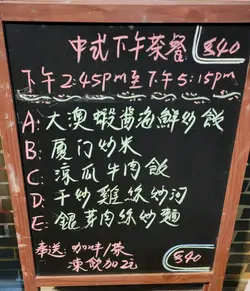 中式下午茶餐 $40
下午2:45pm至下午5:15pm
A: 大澳蝦醬海鮮炒飯
B: 厦门炒米
C: 涼瓜牛肉飯
D: 干炒雞絲炒河
E: 銀芽肉絲炒麵
奉送: 咖啡/茶
凍飲加2元 $40